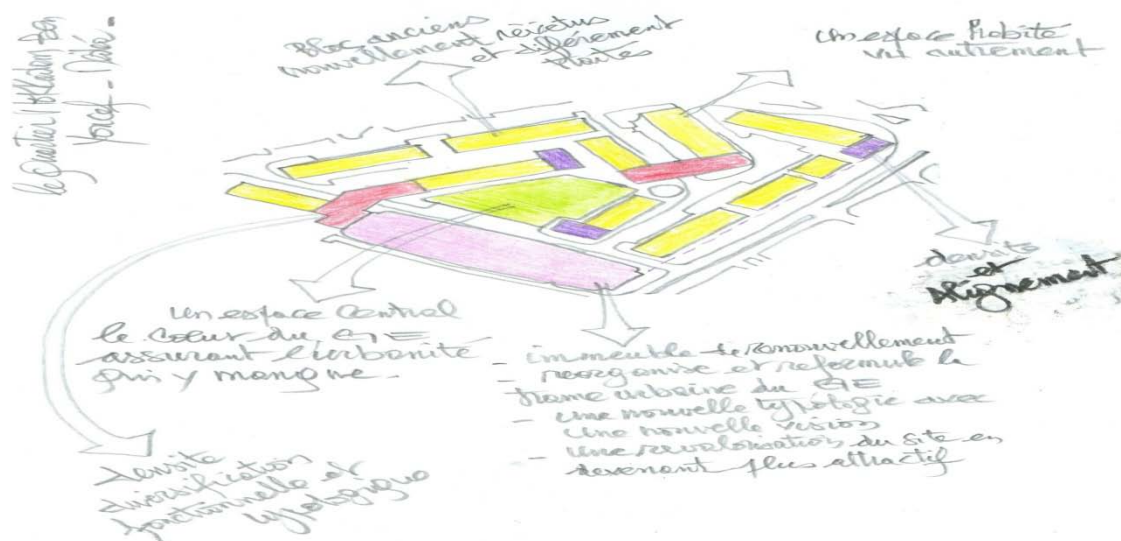 le Quartier
Youcef
Bloc anciens
nouvellement revêtus
et différement
traités
un espace Habité
vu autrement
densité
et
alignement
un espace Central
le Cœur du GE
assurant l'urbanité
qui y manque
immeuble de renouvellement
- réorganise et reformule la
trame urbaine du GE
- une nouvelle typologie avec
une nouvelle vision
- une revalorisation du site en
devenant plus attractif
densité
diversification
fonctionnelle et
typologique